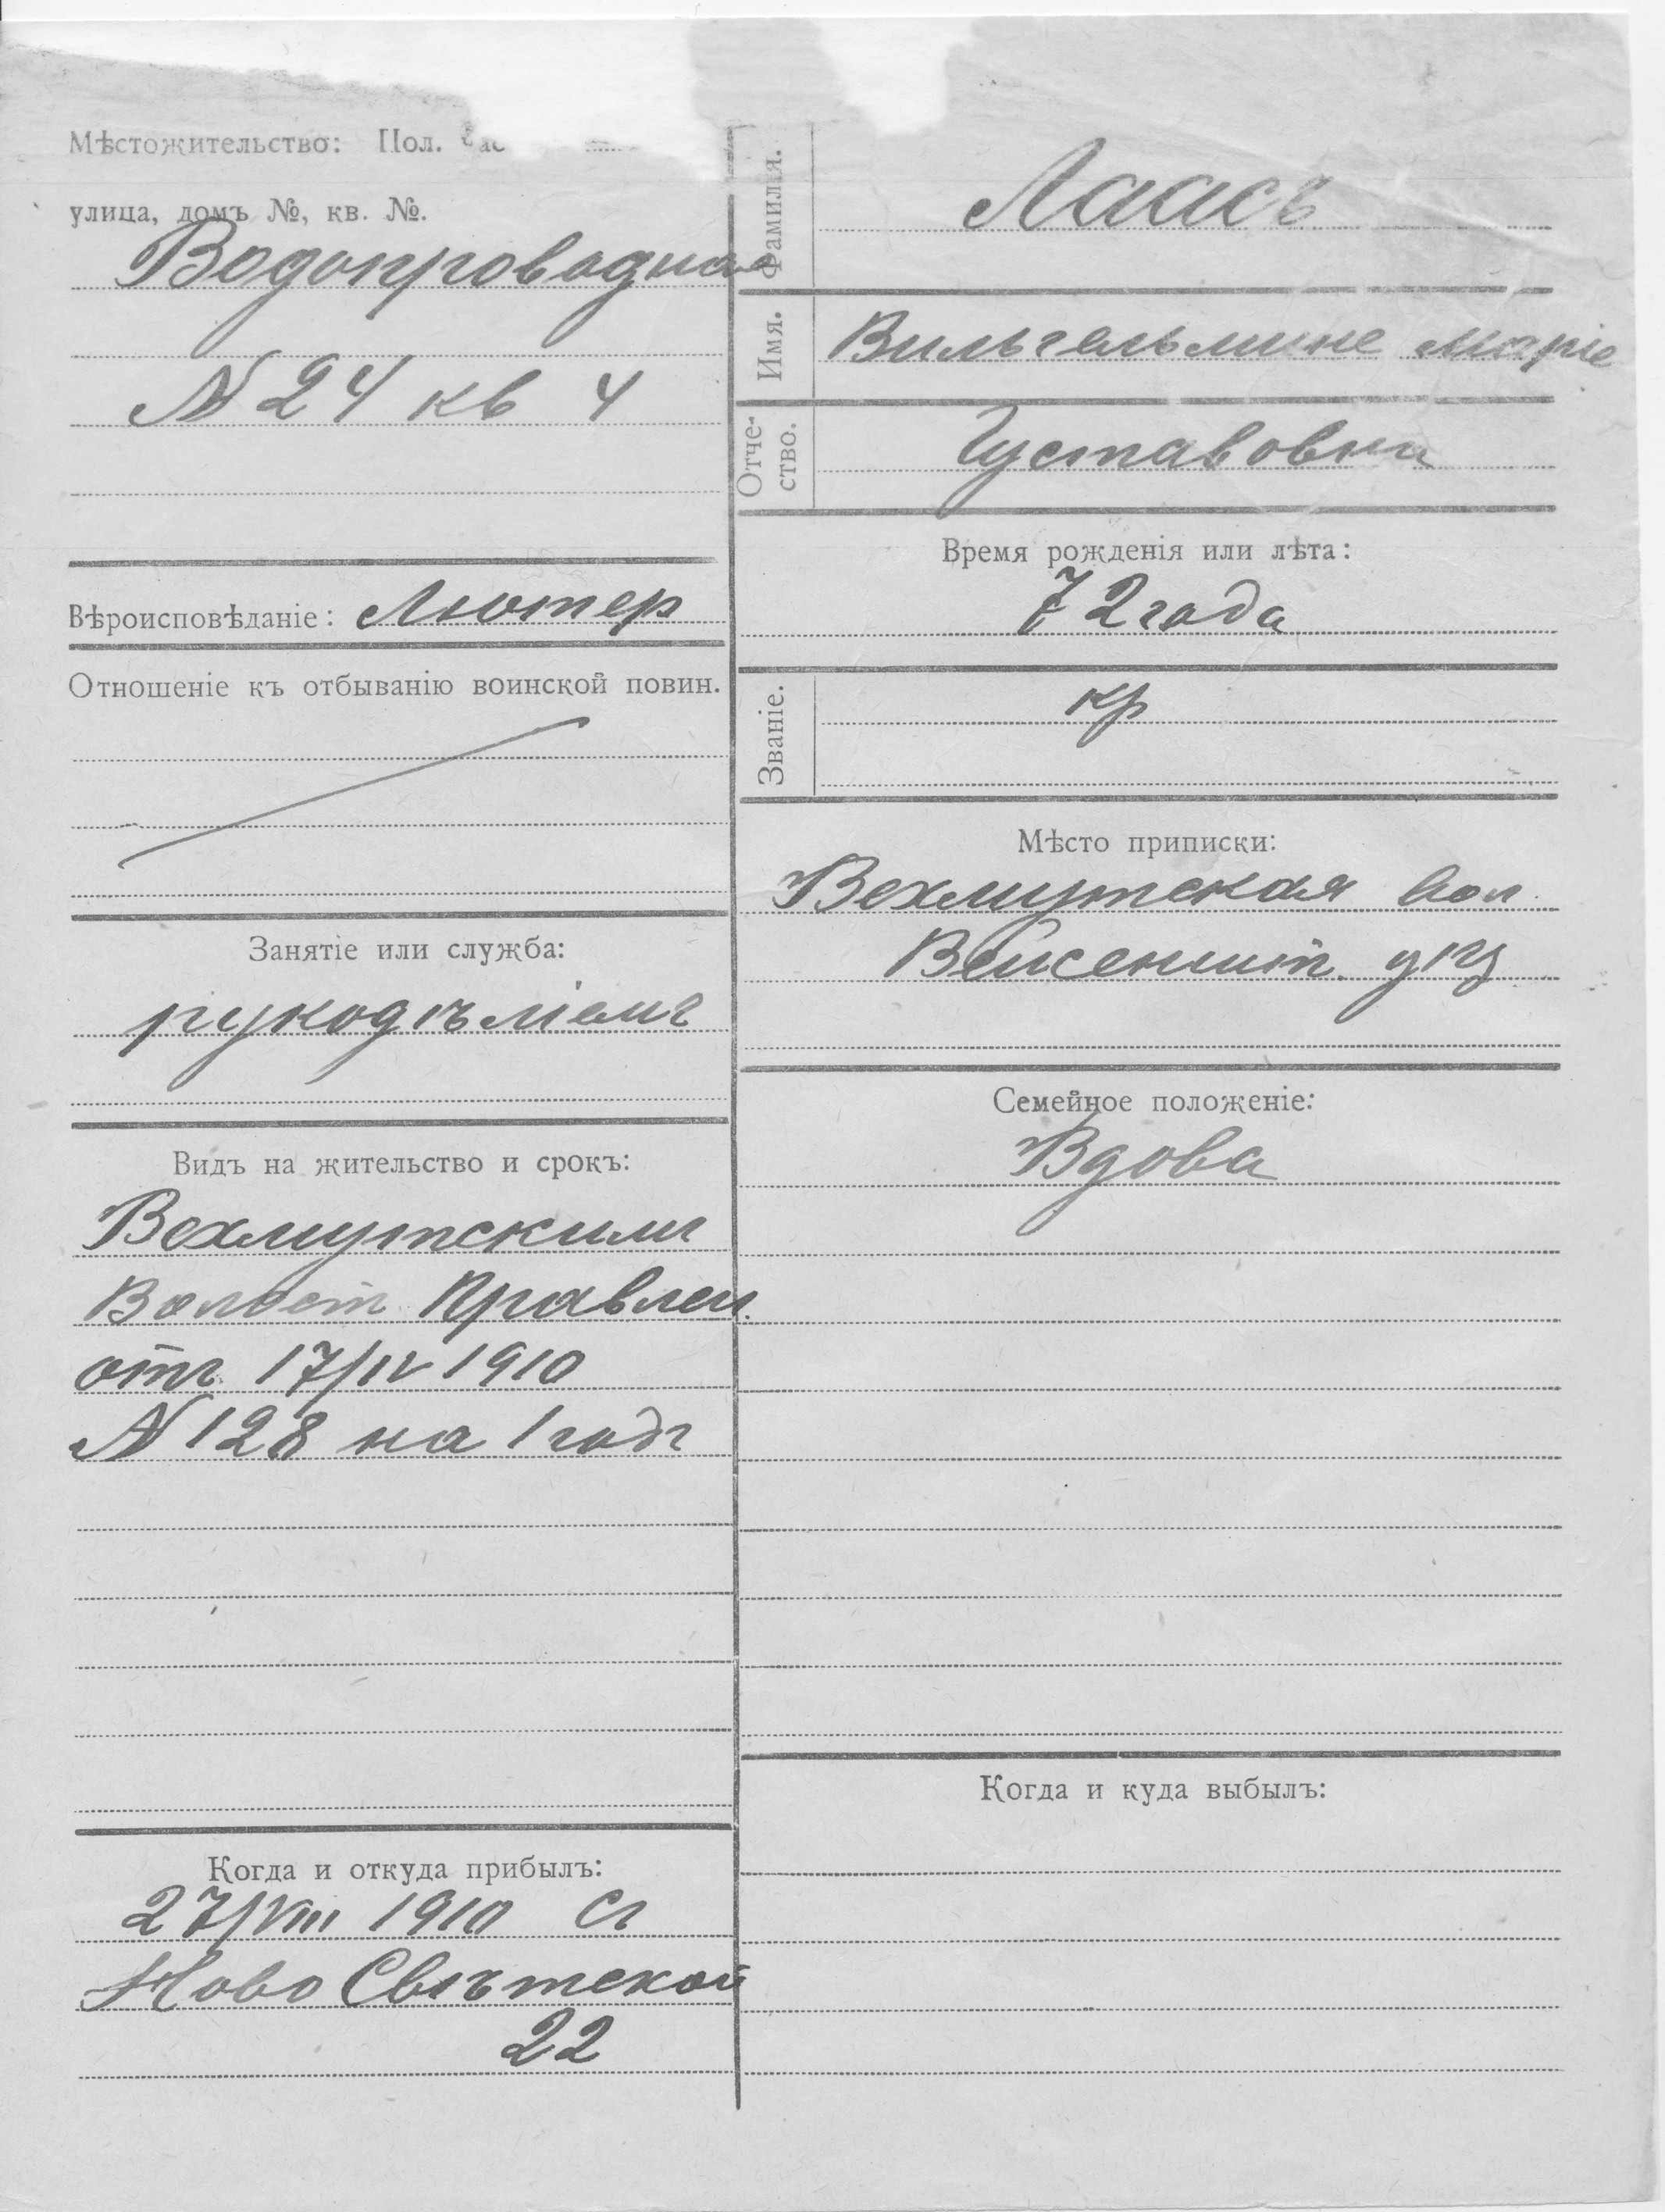 Мѣстожительство: Пол. час
улица, домъ №, кв. №.
Водопроводная
№ 24 кв 4
Вѣроисповѣданіе: Лютер
Отношеніе къ отбыванію воинской повин.
Занятіе или служба:
рукодѣліемъ
Видъ на жительство и срокъ:
Вехмутскимъ
Волост. Правлен.
отъ 17/IV 1910
№ 128 на 1 годъ
Когда и откуда прибылъ:
27/VIII 1910 съ
Ново Свѣтской
22
Фамилія. Лаасъ
Имя. Вильгельмине Маріе
Отче-
ство. Густавовна
Время рожденія или лѣта:
72 года
Званіе. кр
Мѣсто приписки:
Вехмутская вол.
Вейсеншт.
Семейное положеніе:
Вдова
Когда и куда выбылъ: